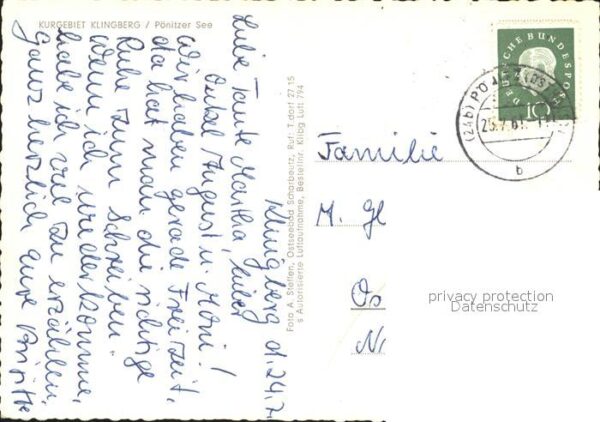 KURGEBIET KLINGBERG / Pönitzer See
Klingberg d. 24.7.
Liebe Tante Martha, lieber
Onkel August u. Moni!
Wir haben gerade Freizeit,
da hat man die richtige
Ruhe zum Schreiben.
Wenn ich wiederkomme,
habe ich viel zu erzählen.
Ganz herzlich eure Brigitte
Foto A. Steffen, Ostseebad Scharbeutz, Ruf: T.dorf 27 15
s Autorisierte Luftaufnahme, Bestellnr. Klibg Luft 794
DEUTSCHE BUNDESPOST
10
(24b)
25.7.61
b
Familie
M. Gl
Os
N
privacy protection
Datenschutz